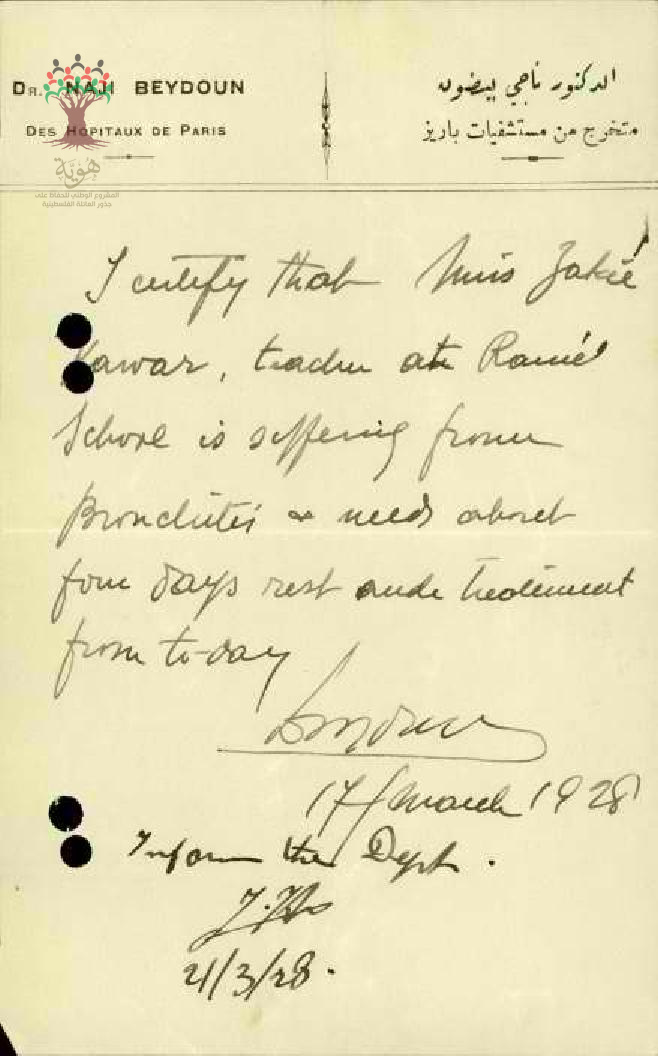 DR. NAJI BEYDOUN
DES HÔPITAUX DE PARIS
الدكتور ناجي بيضون
متخرج من مستشفيات باريز
هوية
المشروع الوطني للحفاظ على
جذور العائلة الفلسطينية
I certify that Miss Zakié
Kawar, teacher at
School is suffering from
Bronchitis & needs about
four days rest and treatment
from to-day
17/March 1928
Inform the Dept.
21/3/28.